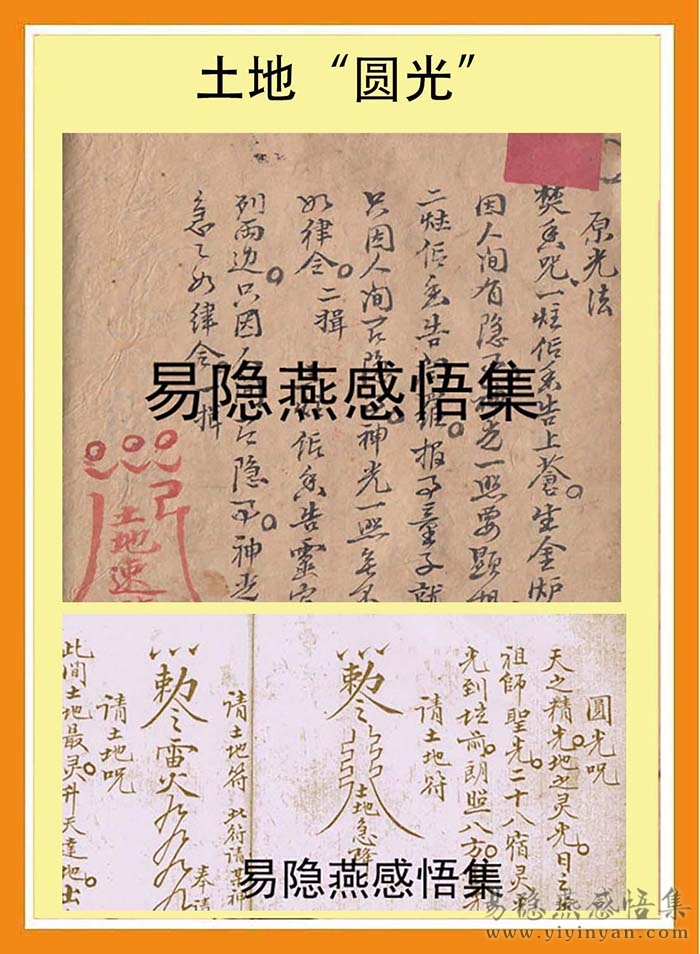 土地“圆光”
原光法
焚香咒、一炷信香告上蒼。生金炉
因人间有隐
光一照要顕
二炷信香告
报事童子就
只因人间有隐
神光一照
如律令。二揖
信香告靈官
列两边。只因
有隐
神光
急急如律令。揖
土地速
易隐燕感悟集
圓光咒
天之精光地之灵光日之
祖師聖光二十八宿灵
光到坛前。朗照八方。
请土地符
勅令
土地急降
请土地符 此符请某神
勅令雷火
奉请
请土地咒
此间土地最灵。升天達地出
易隐燕感悟集
易隐燕感悟集
www.yiyinyan.com